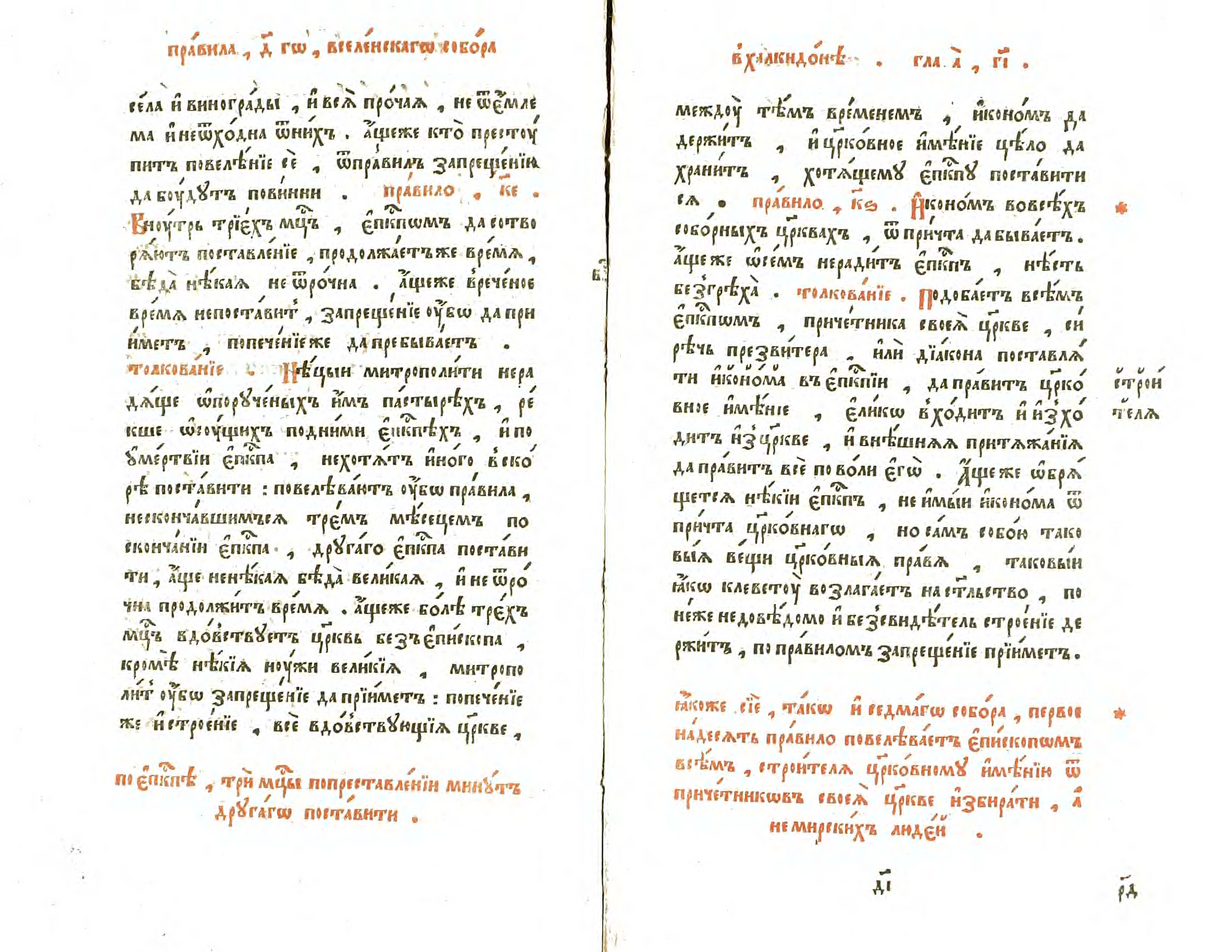 пра́вила , д҃ гѡ , вселе́нскагѡ собо́ра
се́ла и҆ виногра́ды , и҆ всѧ̀ про́чаѧ , не ѿе́мле
ма и҆ неѿхо́дна ѿни́хъ . а҆́щеже кто̀ престꙋ́
питъ повелѣ́нїе сѐ , ѿпра́вилъ запреще́нїю
да бꙋ́дꙋтъ пови́нни . пра́вило , к҃е .
Внꙋ́трь трїе́хъ мц҃ъ , є҆пⷭ҇кпѡмъ да сотво
рѧ́ютъ поставле́нїе , продолжа́етъже вре́мѧ ,
бѣда̀ нѣ́каѧ не ѿро́чна . а҆́щеже врече́ное
вре́мѧ непоста́витъ , запреще́нїе ᲂу҆́бѡ да прїи
и҆́метъ , попече́нїеже да пребыва́етъ .
толкова́нїе . Нѣ́цыи митрополи́ти нера
дѧ́ще ѡ҆порꙋче́ныхъ и҆̀мъ па́стырѣхъ , ре́
кше ѡ҆сꙋ́щихъ подни́ми є҆пⷭ҇кпѣхъ , и҆ по
ᲂу҆ме́ртвїи є҆пⷭ҇кпа , нехотѧ́тъ и҆но́го вско́
рѣ поста́вити : повелѣва́ютъ ᲂу҆́бѡ пра́вила ,
несконча́вшимъсѧ тре́мъ мѣ́сецемъ по
сконча́нїи є҆пⷭ҇кпа , дрꙋга́го є҆пⷭ҇кпа поста́ви
ти , а҆́ще ненѣ́каѧ бѣда̀ вели́каѧ , и҆ не ѿро́
чна продолжи́тъ вре́мѧ . а҆́щеже бо́лѣ тре́хъ
мц҃ъ вдо́вствꙋетъ цр҃квь безъ є҆пи́скопа ,
кромѣ̀ нѣ́кїѧ нꙋ́жи вели́кїѧ , митропо
ли́тъ ᲂу҆́бѡ запреще́нїе да прїи́метъ : попече́нїе
же и҆ строе́нїе , всѐ вдо́вствꙋющїѧ цр҃кве ,
по є҆пⷭ҇кпѣ , трѝ мц҃ы попреставле́нїи минꙋ́тъ
дрꙋга́гѡ поста́вити .
вхалкидо́нѣ . гла. а҃ , гі҃ .
междꙋ̀ тѣ́мъ вре́менемъ , и҆коно́мъ да
держи́тъ , и҆ цр҃ко́вное и҆мѣ́нїе цѣ́ло да
храни́тъ , хотѧ́щемꙋ є҆пⷭ҇кпꙋ поста́вити
сѧ . пра́вило , к҃ѕ . И҆коно́мъ вовсѣ́хъ *
собо́рныхъ цр҃квахъ , ѿ при́чта да быва́етъ .
а҆́щеже ѡ҆се́мъ неради́тъ є҆пⷭ҇кпъ , нѣ́сть
безгрѣха̀ . толкова́нїе . Подоба́етъ всѣ́мъ
є҆пⷭ҇кпѡмъ , приче́тника своеѧ̀ цр҃кве , си́
рѣчь презви́тера , и҆лѝ дїа́кона поставлѧ́
ти и҆коно́ма въ є҆пⷭ҇кпїи , да пра́витъ цр҃ко́
вное и҆мѣ́нїе , є҆ли́кѡ вхо́дитъ и҆ и҆зхо́
дитъ и҆зцр҃кве , и҆ внѣ́шнѧѧ притѧжа́нїѧ
да пра́витъ всѐ по во́ли є҆гѡ̀ . А҆́щеже ѡ҆брѧ́
щетсѧ нѣ́кїи є҆пⷭ҇кпъ , не и҆мы́и и҆коно́ма ѿ
при́чта цр҃ко́внагѡ , но са́мъ собо́ю тако
вы́ѧ ве́щи цр҃ко́вныѧ пра́вѧ , таковы́и
ꙗ҆́кѡ клеветꙋ̀ возлага́етъ на ст҃льство , по
не́же недовѣ́домо и҆ безсвидѣ́тель строе́нїе де
ржи́тъ , по пра́виломъ запреще́нїе прїи́метъ .
строи́
телѧ
ꙗ҆́коже сїѐ , та́кѡ и҆ седма́гѡ собо́ра , первое *
на́десѧть пра́вило повелѣва́етъ є҆пи́скопѡмъ
всѣ́мъ , строи́телѧ цр҃ко́вномꙋ и҆мѣ́нїю ѿ
приче́тникѡвъ своеѧ̀ цр҃кве и҆збира́ти , а҆
не мирски́хъ люде́й .
ді҃ р҃д